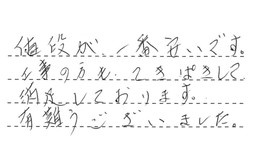 値段が、一番安いです。
仕事の方も、てきぱきして
満足しております。
有難うございました。